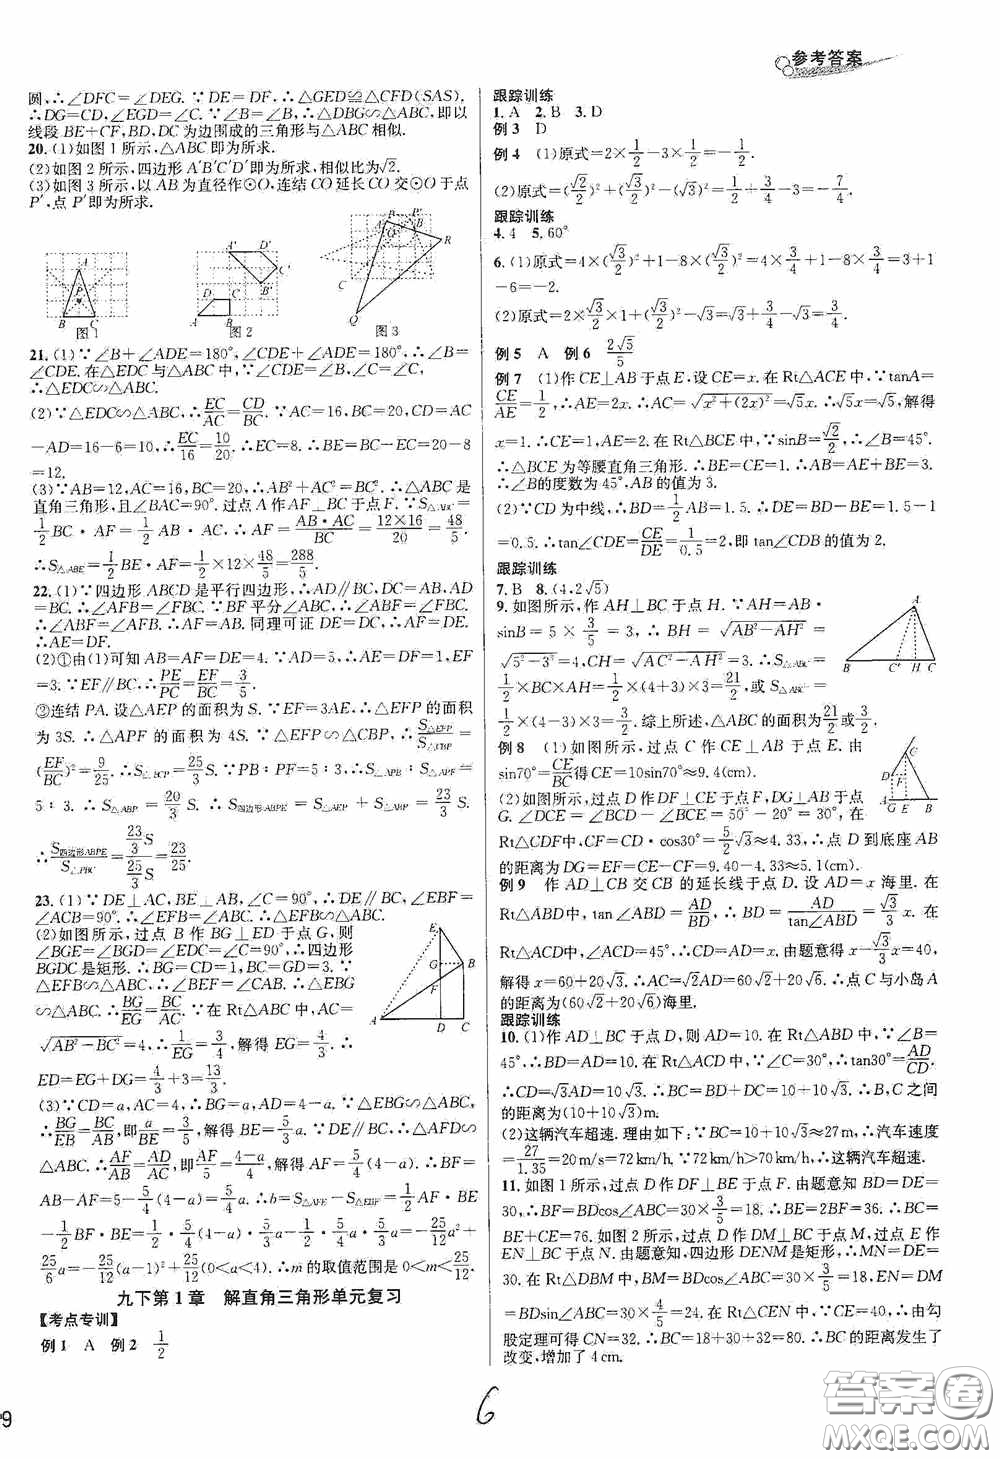 参考答案
圆,∴∠DFC=∠DEG.∵DE=DF,∴△GED≌△CFD(SAS).
∴DG=CD,∠EGD=∠C.∴∠B=∠B,∴△DBG∽△ABC,即以
线段BE+CF,BD,DC为边围成的三角形与△ABC相似.
20.(1)如图1所示,△ABC即为所求.
(2)如图2所示,四边形A'B'C'D'即为所求,相似比为√2.
(3)如图3所示,以AB为直径作⊙O,连结CO延长CO交⊙O于点
P',点P'即为所求.
图1 图2 图3
21.(1)∵∠B+∠ADE=180°,∠CDE+∠ADE=180°,∴∠B=
∠CDE.在△EDC与△ABC中,∵∠B=∠CDE,∠C=∠C,
∴△EDC∽△ABC.
(2)∵△EDC∽△ABC,∴EC/AC=CD/BC.∵AC=16,BC=20,CD=AC
-AD=16-6=10,∴EC/16=10/20.∴EC=8.∴BE=BC-EC=20-8
=12.
(3)∵AB=12,AC=16,BC=20,∴AB²+AC²=BC².∴△ABC是
直角三角形,且∠BAC=90°.过点A作AF⊥BC于点F.∵S△ABC=
1/2BC·AF=1/2AB·AC,∴AF=AB·AC/BC=12×16/20=48/5.
∴S△ABE=1/2BE·AF=1/2×12×48/5=288/5.
22.(1)∵四边形ABCD是平行四边形,∴AD∥BC,DC=AB,AD=
BC.∴∠AFB=∠FBC.∵BF平分∠ABC,∴∠ABF=∠FBC.∴
∠ABF=∠AFB.∴AF=AB.同理可证DE=DC.∴AF=DE.
∴AE=DF.
(2)①由(1)可知AB=AF=DE=4.∵AD=5,∴AE=DF=1,EF
=3.∵EF∥BC,∴PE/PC=EF/BC=3/5.
②连结PA.设△AEP的面积为S.∵EF=3AE,∴△EFP的面积
为3S.∴△APF的面积为4S.∵△EFP∽△CBP,∴S△EFP/S△CBP=
(EF/BC)²=9/25.∴S△PBC=25/3S.∵PB:PF=5:3,∴S△APB:S△APF=
5:3.∴S△ABP=20/3S.∴S四边形ABPE=S△ABP+S△AEP=23/3S.
∴S四边形ABPE/S△PBC=(23/3S)/(25/3S)=23/25.
23.(1)∵DE⊥AC,BE⊥AB,∠C=90°,∴∠BDE=90°,∠EBF=
∠ACB=90°.∴△EFB∽△ABC.
(2)如图所示,过点B作BG⊥ED于点G,则
∠BGE=∠BGD=∠EDC=∠C=90°,∴四边形
BGDC是矩形.∴BG=CD=1,BC=GD=3.∵
△EFB∽△ABC,∴∠BEF=∠CAB.∴△EBG
∽△ABC.∴BG/EG=BC/AC.∵在Rt△ABC中,AC=
√AB²-BC²=4,∴1/EG=3/4,解得EG=4/3.∴
ED=EG+DG=4/3+3=13/3.
(3)∵CD=a,AC=4,∴BG=a,AD=4-a.∵△EBG∽△ABC,
∴BG/EB=BC/AB,即a/BE=3/5.∴BE=5/3a.∵DF∥BC,∴△AFD∽
△ABC.∴AF/AB=AD/AC,即AF/5=4-a/4.∴AF=5/4(4-a).∴BF=
AB-AF=5-5/4(4-a)=5/4a.∴b=S△AFE-S△EBF=1/2AF·BE
-1/2BF·BE=1/2·5/4(4-a)·5/3a-1/2·5/4a·5/3a=-25/12a²+
25/6a=-25/12(a-1)²+25/12(0<a<4).∴m的取值范围是0<m≤25/12.
九下第1章 解直角三角形单元复习
【考点专训】
例1 A 例2 1/2
跟踪训练
1.A 2.B 3.D
例3 D
例4 (1)原式=2×1/2-3×1/2=-1/2.
(2)原式=(√2/2)²+(√3/2)²-(√3)²=1/2+3/4-3=-7/4.
跟踪训练
4.4 5.60°
6.(1)原式=4×(√3/2)²+1-8×(√3/2)²=4×3/4+1-8×3/4=3+1
-6=-2.
(2)原式=2×√3/2×1+(√3/2)²-√3=√3+3/4-√3=3/4.
例5 A 例6 2√5/5
例7 (1)作CE⊥AB于点E,设CE=x.在Rt△ACE中,∵tanA=
CE/AE=1/2,∴AE=2x.∴AC=√x²+(2x)²=√5x.∴√5x=√5,解得
x=1.∴CE=1,AE=2.在Rt△BCE中,∵sinB=√2/2,∴∠B=45°.
∴△BCE为等腰直角三角形.∴BE=CE=1.∴AB=AE+BE=3.
∴∠B的度数为45°,AB的值为3.
(2)∵CD为中线,∴BD=1/2AB=1.5.∴DE=BD-BE=1.5-1
=0.5.∴tan∠CDE=CE/DE=1/0.5=2,即tan∠CDB的值为2.
跟踪训练
7.B 8.(4,2√5)
9.如图所示,作AH⊥BC于点H.∵AH=AB·
sinB=5×3/5=3,∴BH=√AB²-AH²=
√5²-3²=4,CH=√AC²-AH²=3.∴S△ABC=
1/2×BC×AH=1/2×(4+3)×3=21/2,或S△ABC'=
1/2×(4-3)×3=3/2.综上所述,△ABC的面积为21/2或3/2.
例8 (1)如图所示,过点C作CE⊥AB于点E.由
sin70°=CE/BC得CE=10sin70°≈9.4(cm).
(2)如图所示,过点D作DF⊥CE于点F,DG⊥AB于点
G.∠DCE=∠BCD-∠BCE=50°-20°=30°,在
Rt△CDF中,CF=CD·cos30°=5/2√3≈4.33,∴点D到底座AB
的距离为DG=EF=CE-CF=9.40-4.33≈5.1(cm).
例9 作AD⊥CB交CB的延长线于点D.设AD=x海里.在
Rt△ABD中,tan∠ABD=AD/BD,∴BD=AD/tan∠ABD=√3/3x.在
Rt△ACD中,∠ACD=45°,∴CD=AD=x.由题意得x-√3/3x=40,
解得x=60+20√3.∴AC=√2AD=60√2+20√6.∴点C与小岛A
的距离为(60√2+20√6)海里.
跟踪训练
10.(1)作AD⊥BC于点D,则AD=10.在Rt△ABD中,∵∠B=
45°,∴BD=AD=10.在Rt△ACD中,∵∠C=30°,∴tan30°=AD/CD.
∴CD=√3AD=10√3.∴BC=BD+DC=10+10√3.∴B,C之间
的距离为(10+10√3)m.
(2)这辆汽车超速.理由如下:∵BC=10+10√3≈27m,∴汽车速度
=27/1.35=20m/s=72km/h.∵72km/h>70km/h,∴这辆汽车超速.
11.如图1所示,过点D作DF⊥BE于点F.由题意知BD=DE=
30,∴BF=BDcos∠ABC=30×3/5=18.∴BE=2BF=36.∴BC=
BE+CE=76.如图2所示,过点D作DM⊥BC于点M,过点E作
EN⊥BC于点N.由题意知,四边形DENM是矩形,∴MN=DE=
30.在Rt△DBM中,BM=BDcos∠ABC=30×3/5=18,EN=DM=
BDsin∠ABC=30×4/5=24.在Rt△CEN中,∵CE=40,∴由勾
股定理可得CN=32.∴BC=18+30+32=80.∴BC的距离发生了
改变,增加了4cm.
6
答案圈
MXQE.COM